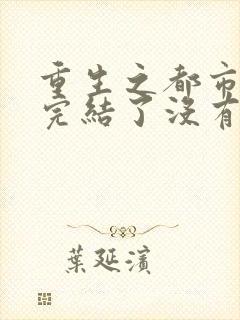 重生之都市
完結了沒有
葉延濱